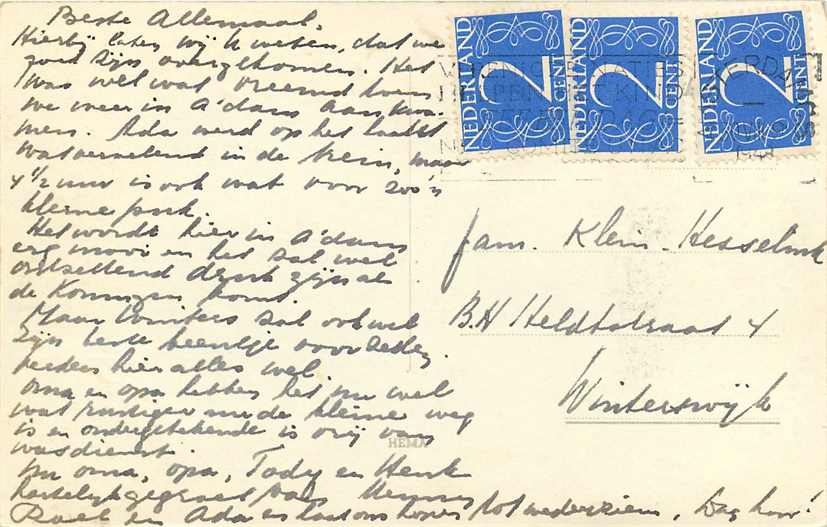 Beste Allemaal.
Hierbij laten wij U weten, dat we
goed zijn overgekomen. Het
was wel wat vreemd toen
we weer in A'dam aankwa-
men. Ada werd op het laatst
wat vervelend in de trein, maar
4 1/2 uur is ook wat voor zoo'n
kleine puk.
Het wordt hier in A'dam
erg mooi en het zal wel
ontzettend druk zijn als
de Koningin komt.
Maar Winters zal ook wel
zijn beste beentje voorzetten,
verders hier alles wel.
Oma en opa hebben het nu wel
wat rustiger nu de kleine weg
is en ondergetekende is vrij van
wasdienst.
Nu oma, opa, Tody en Henk
hartelijk gegroet van Henny
Roel en Ada en laat ons hopen tot wederziens, Dag hoor!
NEDERLAND 2 CENT
NEDERLAND 2 CENT
NEDERLAND 2 CENT
Fam. Klein-Hesselink
B.H Heldtstraat 4
Winterswijk
HEMA